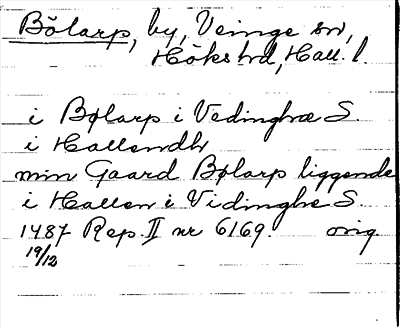 Bölarp, by, Veinge sn,
Höks hd, Hall. l.
i Bølarp i Vedinghæ S.
i Hallendh
min Gaard Bølarp liggende
i Hallen i Vidinghe S.
1487 Rep. II nr 6169. orig.
19/12